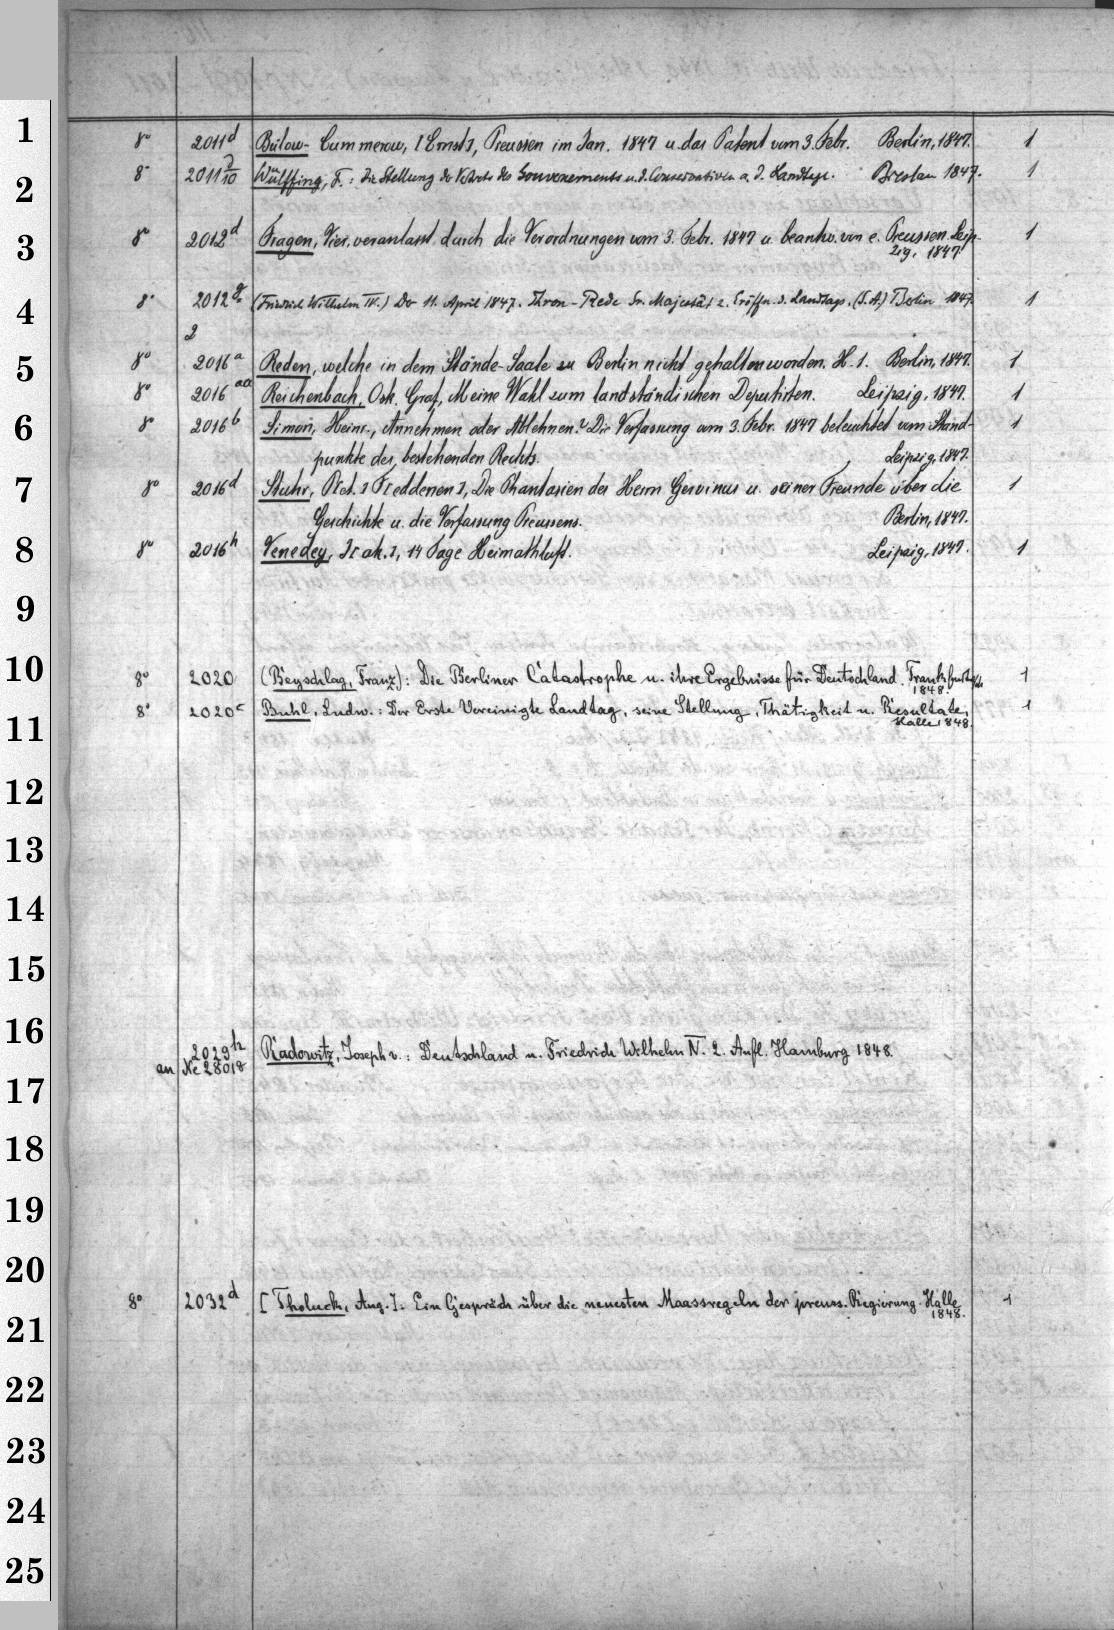 1 8° 2011d Bülow-Cummerow, [Ernst], Preussen im Jan. 1847 u. das Patent vom 3. Febr. Berlin, 1847. 1
2 8° 2011 Wülffing, F.: Die Stellung des Gouvernements u. d. Conservativen a. d. Landtage. Breslau 1847. 1
3 8° 2012d Fragen, Vier, veranlasst durch die Verordnungen vom 3. Febr. 1847 u. beantw. von e. Preussen. Leip- 1
zig, 1847
4 8° 2012 (Friedrich Wilhelm IV.) Der 11. April 1847. Thron-Rede Sr. Majestät z. Eröffn. d. Landtags. (S.A.) Berlin 1847. 1
2
5 8° 2016a Reden, welche in dem Stände-Saale zu Berlin nicht gehalten worden. H. 1. Berlin, 1847. 1
8° 2016aa Reichenbach, Osk. Graf, Meine Wahl zum landständischen Deputirten. Leipzig, 1847. 1
6 8° 2016b Simon, Heinr., Annehmen oder Ablehnen? Die Verfassung vom 3. Febr. 1847 beleuchtet vom Stand- 1
punkte des bestehenden Rechts. Leipzig, 1847.
7 8° 2016d Stuhr, P[et.] F[eddersen], Die Phantasien des Herrn Gervinus u. seiner Freunde über die 1
Geschichte u. die Verfassung Preussens. Berlin, 1847.
8 8° 2016h Venedey, J[ak.], 14 Tage Heimathluft. Leipzig, 1847. 1
9
10 8° 2020 (Beyschlag, Franz): Die Berliner Catastrophe u. ihre Ergebnisse für Deutschland. Frankfurt 1
1848.
11 8° 2020c Buhl, Ludw.: Der Erste Vereinigte Landtag, seine Stellung, Thätigkeit u. Resultate. 1
Halle 1848.
12
13
14
15
16 2029h Radowitz, Joseph v.: Deutschland u. Friedrich Wilhelm IV. 2. Aufl. Hamburg 1848.
an Ne 28018
17
18
19
20
8° 2032d [Tholuck, Aug.]: Ein Gespräch über die neuesten Maassregeln der preuss. Regierung. Halle 1
1848.
21
22
23
24
25